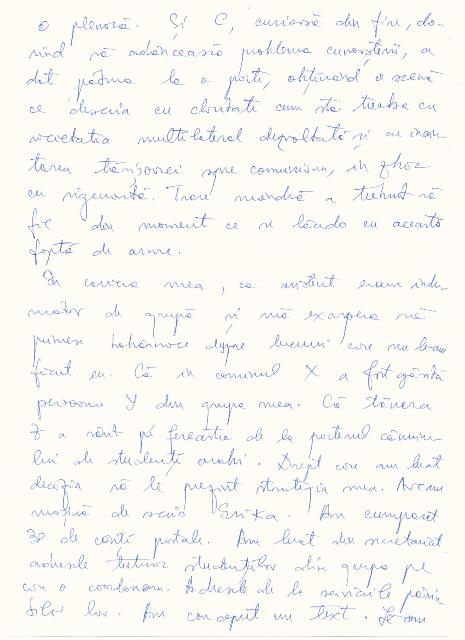 o plenară. Și C, curioasă din fire, do-
rind să adâncească problema cunoașterii, a
dat pătura la o parte, obținând o scenă
ce descria cu claritate cum stă treaba cu
societatea multilateral dezvoltată și cu înain-
tarea spre comunism, în
cu siguranță. Tare mândră a trebuit să
fie din moment ce se lăuda cu această
faptă de arme.
În cariera mea, ca asistent eram îndru-
mător de grupă și mă exaspera să
primesc despre lucruri care nu le-am
făcut eu. Că în căminul X a fost găsită
persoana Y din grupa mea. Că tânăra
Z a sărit pe fereastra de la parterul cămi-
lui de studenți arabi. Drept care am luat
decizia să le prezint strategia mea. Aveam
mașină de scris Erika. Am cumpărat
30 de cărți poștale. Am luat din secretariat
adresele tuturor studenților din grupa pe
care o coordonam. Adresele de la serviciile părin-
ților lor. Am conceput un text. Le-am